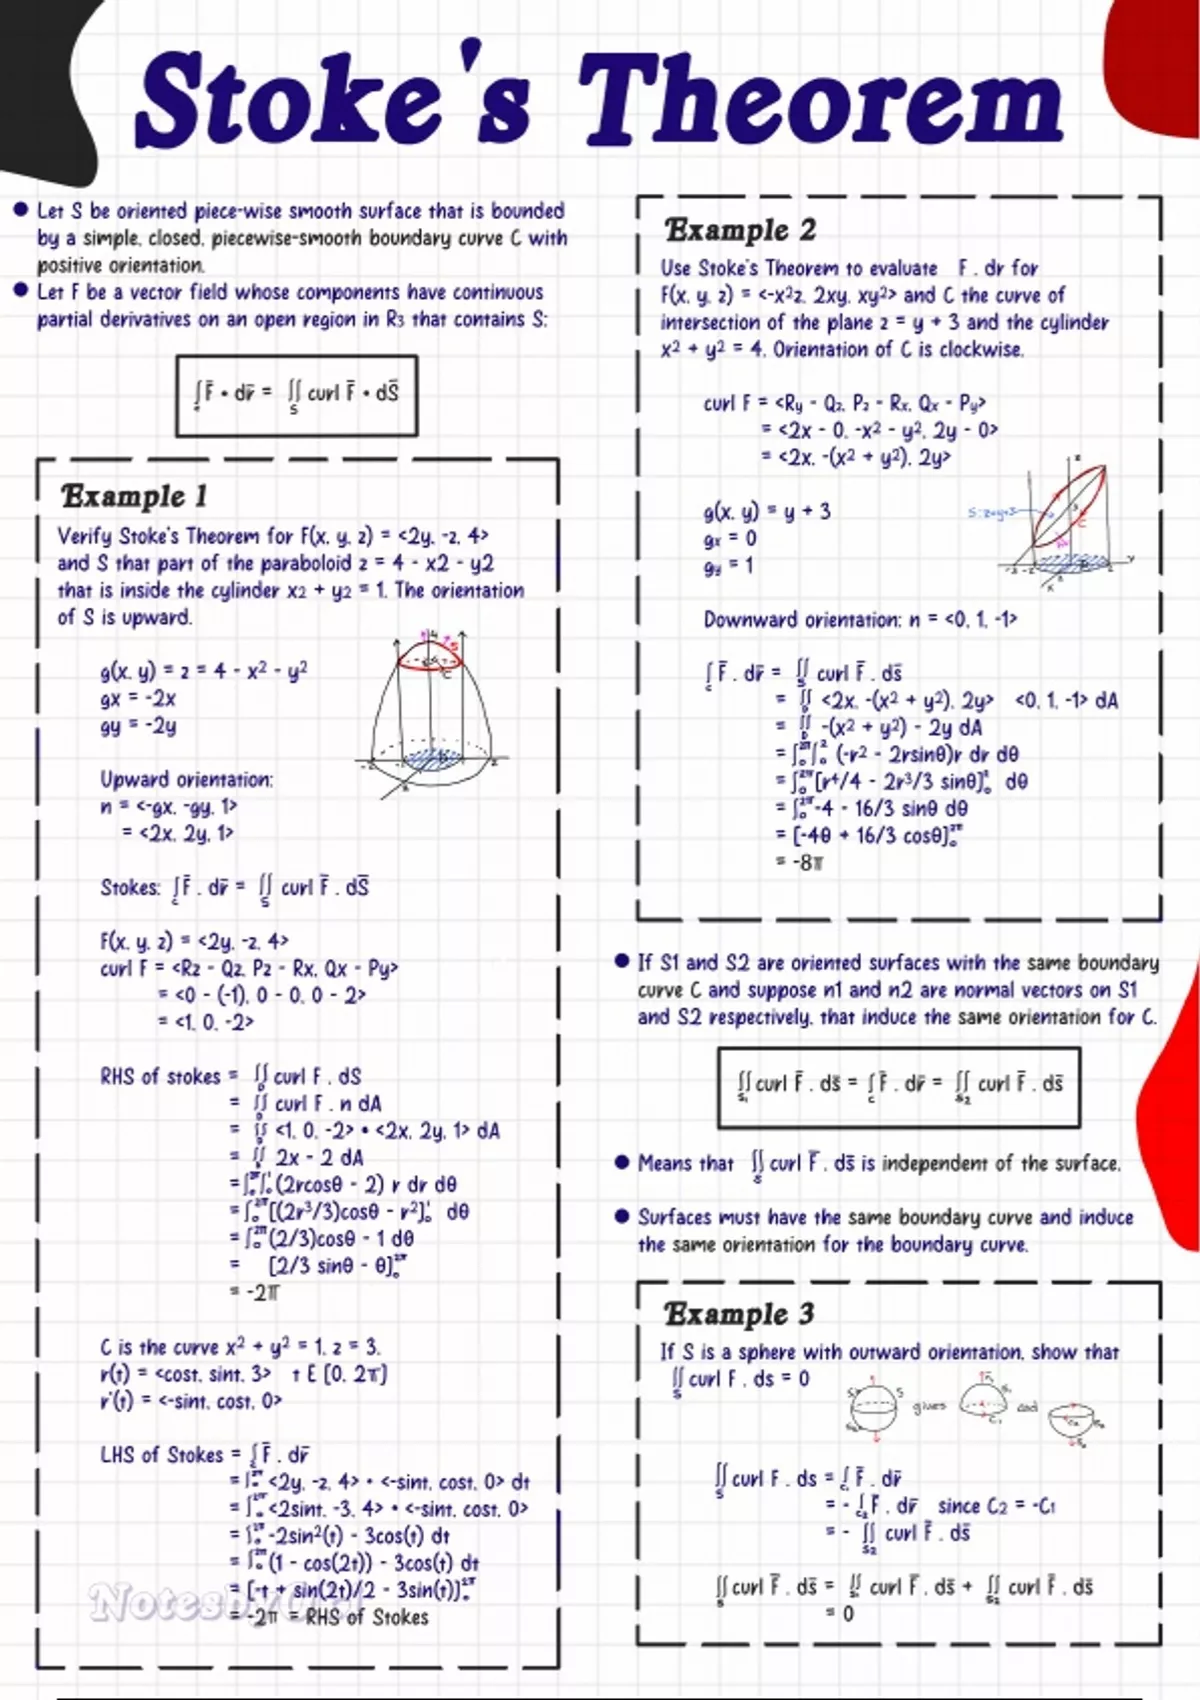 Stoke's Theorem
● Let S be oriented piece-wise smooth surface that is bounded
by a simple, closed, piecewise-smooth boundary curve C with
positive orientation.
● Let F be a vector field whose components have continuous
partial derivatives on an open region in R3 that contains S:
∫c F̄ • dr̄ = ∬S curl F̄ • dS̄
Example 1
Verify Stoke's Theorem for F(x, y, z) = <2y, -z, 4>
and S that part of the paraboloid z = 4 - x2 - y2
that is inside the cylinder x2 + y2 = 1. The orientation
of S is upward.
g(x, y) = z = 4 - x² - y²
gx = -2x
gy = -2y
Upward orientation:
n = <-gx, -gy, 1>
= <2x, 2y, 1>
Stokes: ∫c F̄ . dr̄ = ∬S curl F̄ . dS̄
F(x, y, z) = <2y, -z, 4>
curl F = <Rz - Qz, Pz - Rx, Qx - Py>
= <0 - (-1), 0 - 0, 0 - 2>
= <1, 0, -2>
RHS of stokes = ∬D curl F . dS
= ∬D curl F . n dA
= ∬D <1, 0, -2> • <2x, 2y, 1> dA
= ∬D 2x - 2 dA
= ∫₀²π ∫₀¹ (2rcosθ - 2) r dr dθ
= ∫₀²π [(2r³/3)cosθ - r²]₀¹ dθ
= ∫₀²π (2/3)cosθ - 1 dθ
= [2/3 sinθ - θ]₀²π
= -2π
C is the curve x² + y² = 1, z = 3.
r(t) = <cost, sint, 3> t E [0, 2π]
r'(t) = <-sint, cost, 0>
LHS of Stokes = ∫c F̄ . dr̄
= ∫₀²π <2y, -z, 4> • <-sint, cost, 0> dt
= ∫₀²π <2sint, -3, 4> • <-sint, cost, 0>
= ∫₀²π -2sin²(t) - 3cos(t) dt
= ∫₀²π (1 - cos(2t)) - 3cos(t) dt
= [-t + sin(2t)/2 - 3sin(t)]₀²π
= -2π = RHS of Stokes
Example 2
Use Stoke's Theorem to evaluate F . dr for
F(x, y, z) = <-x²z, 2xy, xy²> and C the curve of
intersection of the plane z = y + 3 and the cylinder
x² + y² = 4. Orientation of C is clockwise.
curl F = <Ry - Qz, Pz - Rx, Qx - Py>
= <2x - 0, -x² - y², 2y - 0>
= <2x, -(x² + y²), 2y>
g(x, y) = y + 3
gx = 0
gy = 1
S: z=y+3
Downward orientation: n = <0, 1, -1>
∫c F̄ . dr̄ = ∬S curl F̄ . ds̄
= ∬D <2x, -(x² + y²), 2y> <0, 1, -1> dA
= ∬D -(x² + y²) - 2y dA
= ∫₀²π ∫₀² (-r² - 2rsinθ)r dr dθ
= ∫₀²π [r⁴/4 - 2r³/3 sinθ]₀² dθ
= ∫₀²π -4 - 16/3 sinθ dθ
= [-4θ + 16/3 cosθ]₀²π
= -8π
● If S1 and S2 are oriented surfaces with the same boundary
curve C and suppose n1 and n2 are normal vectors on S1
and S2 respectively, that induce the same orientation for C.
∬S₁ curl F̄ . ds̄ = ∫c F̄ . dr̄ = ∬S₂ curl F̄ . ds̄
● Means that ∬S curl F̄ . ds̄ is independent of the surface.
● Surfaces must have the same boundary curve and induce
the same orientation for the boundary curve.
Example 3
If S is a sphere with outward orientation, show that
∬S curl F . ds = 0
gives and
∬S curl F . ds = ∫c₁ F̄ . dr̄
= - ∫c₂ F̄ . dr̄ since C2 = -C1
= - ∬S₂ curl F̄ . ds̄
∬S curl F̄ . ds̄ = ∬S₁ curl F̄ . ds̄ + ∬S₂ curl F̄ . ds̄
= 0